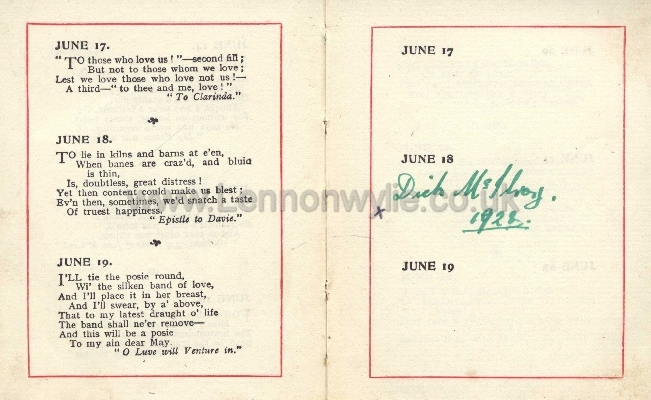 JUNE 17.
"TO those who love us!"—second fill;
But not to those whom we love;
Lest we love those who love not us!—
A third—"to thee and me, love!"
"To Clarinda."
JUNE 18.
TO lie in kilns and barns at e'en,
When banes are craz'd, and bluid
is thin,
Is, doubtless, great distress!
Yet then content could make us blest;
Ev'n then, sometimes, we'd snatch a taste
Of truest happiness.
"Epistle to Davie."
JUNE 19.
I'LL tie the posie round,
Wi' the silken band of love,
And I'll place it in her breast,
And I'll swear, by a' above,
That to my latest draught o' life
The band shall ne'er remove—
And this will be a posie
To my ain dear May.
"O Luve will Venture in."
JUNE 17
JUNE 18
Dick McIlroy.
x
1928.
JUNE 19
www.Lennonwylie.co.uk